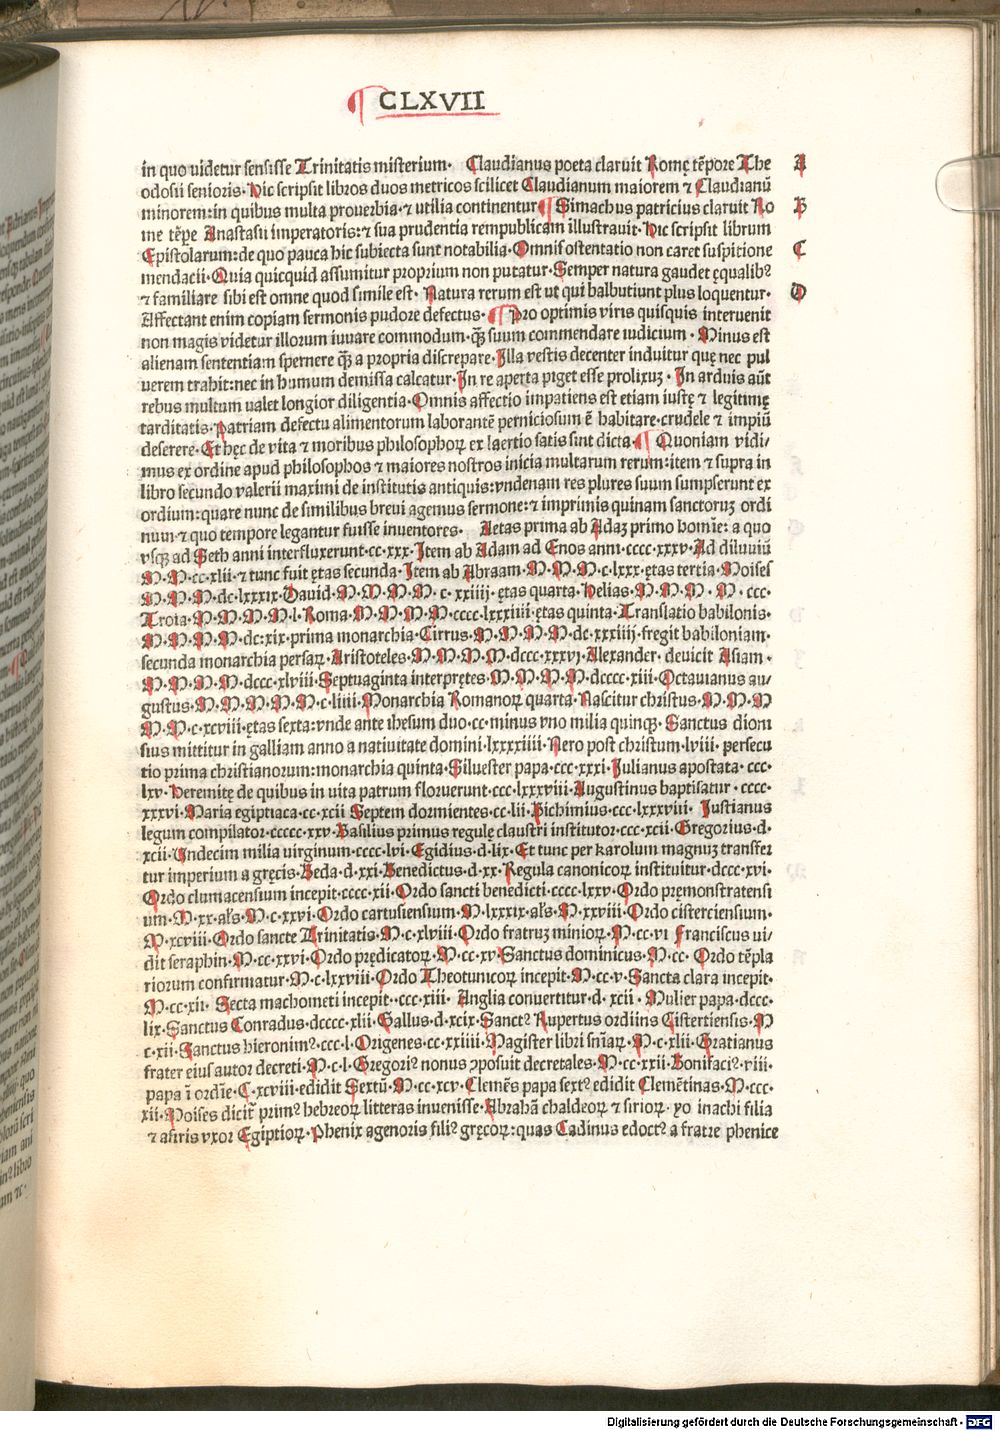 CLXVII
in quo videtur sensisse Trinitatis misterium· Claudianus poeta claruit Romę tēpore The A
odosii senioris· Hic scripsit libros duos metricos scilicet Claudianum maiorem ⁊ Claudianū
minorem:in quibus multa prouerbia·⁊ utilia continentur¶ Simachus patricius claruit Ro B
me tēpe Anastasii imperatoris:⁊ sua prudentia rempublicam illustrauit· Hic scripsit librum
Epistolarum:de quo pauca hic subiecta sunt notabilia· Omnis ostentatio non caret suspitione C
mendacii· Quia quicquid assumitur proprium non putatur· Semper natura gaudet ęqualibꝰ
⁊ familiare sibi est omne quod simile est· Natura rerum est ut qui balbutiunt plus loquentur· D
Affectant enim copiam sermonis pudore defectus·¶ Pro optimis viris quisquis interuenit
non magis videtur illorum iuuare commodum·q̄ꝫ suum commendare iudicium· Minus est
alienam sententiam spernere q̄ꝫ a propria discrepare· Illa vestis decenter induitur quę nec pul
uerem trahit:nec in humum demissa calcatur· In re aperta piget esse prolixuꝫ· In arduis aūt
rebus multum ualet longior diligentia· Omnis affectio impatiens est etiam iustę ⁊ legitimę
tarditatis· Patriam defectu alimentorum laborantē perniciosum ē habitare·crudele ⁊ impiū
deserere· Et hęc de vita ⁊ moribus philosophoꝝ ex laertio satis sint dicta·¶ Quoniam vidi/
mus ex ordine apud philosophos ⁊ maiores nostros inicia multarum rerum:item ⁊ supra in
libro secundo valerii maximi de institutis antiquis:vndenam res plures suum sumpserunt ex
ordium:quare nunc de similibus breui agemus sermone:⁊ imprimis quinam sanctoruꝫ ordi
num·⁊ quo tempore legantur fuisse inuentores· Aetas prima ab Adaꝫ primo homīe: a quo
vsqꝫ ad Seth anni interfluxerunt·cc·xxx· Item ab Adam ad Enos anni·cccc·xxxv· Ad diluuiū
M·M·cc·xlii·⁊ tunc fuit ętas secunda· Item ab Abraam·M·M·M·c·lxxx·ętas tertia· Moises
M·M·M·dc·lxxxix· Dauid·M·M·M·M·c·xxiiij·ętas quarta· Helias·M·M·M·M·ccc·
Troia·M·M·M·M·l· Roma·M·M·M·M·cccc·lxxxiiii·ętas quinta· Translatio babilonis·
M·M·M·M·dc:xix·prima monarchia· Cirrus·M·M·M·M·dc·xxxiiij·fregit babiloniam·
secunda monarchia persaꝝ· Aristoteles·M·M·M·M·dccc·xxxvj· Alexander·deuicit Asiam·
M·M·M·M·dccc·xlviii· Septuaginta interprętes·M·M·M·M·dcccc·xiii· Octauianus au/
gustus·M·M·M·M·M·c·liiii· Monarchia Romanoꝝ quarta· Nascitur christus·M·M·M
M·M·c·xcviii·ętas sexta:vnde ante ihesum duo·cc·minus vno milia quinqꝫ· Sanctus dioni
sius mittitur in galliam anno a natiuitate domini·lxxxxiiii· Nero post christum·lviii·persecu
tio prima christianorum:monarchia quinta· Siluester papa·ccc·xxxi· Iulianus apostata·ccc·
lxv· Heremitę de quibus in vita patrum floruerunt·ccc·lxxxviii· Augustinus baptisatur·cccc·
xxxvi· Maria egiptiaca·cc·xcii Septem dormientes·cc·lii· Pichimius·ccc·lxxxviii· Iustianus
legum compilator·ccccc·xxv· Basilius primus regulę claustri institutor·ccc·xcii· Gregorius·d·
xcii· Undecim milia virginum·cccc·lvi· Egidius·d·lix· Et tunc per karolum magnuꝫ transfer
tur imperium a gręcis· Beda·d·xxi· Benedictus·d·xx· Regula canonicoꝝ instituitur·dccc·xvi·
Ordo clumacensium incepit·cccc·xii· Ordo sancti benedicti·cccc·lxxv· Ordo pręmonstratensi
um·M·xx·al̄s·M·c·xxvi· Ordo cartusiensium·M·lxxxix·al̄s·M·xxviii· Ordo cisterciensium·
M·xcviii· Ordo sancte Trinitatis·M·c·xlviii· Ordo fratruꝫ minioꝝ·M·cc·vi Franciscus ui/
dit seraphin·M·cc·xxvi· Ordo prędicatoꝝ·M·cc·xv· Sanctus dominicus·M·cc· Ordo tēpla
riorum confirmatur·M·c·lxxviii· Ordo Theotunicoꝝ incepit·M·cc·v· Sancta clara incepit·
M·cc·xii· Secta machometi incepit·ccc·xiii· Anglia conuertitur·d·xcii· Mulier papa·dccc·
lix· Sanctus Conradus·dcccc·xlii· Gallus·d·xcix· Sanctꝰ Rupertus ordiins Cistertiensis·M
c·xii· Sanctus hieronimꝰ·ccc·l· Origenes·cc·xxiiii· Magister libri sn̄iaꝝ·M·c·xlii· Gratianus
frater eius autor decreti·M·c·l· Gregoriꝰ nonus ꝯposuit decretales·M·cc·xxii· Bonifaciꝰ·viii·
papa ī ordīe·C·xcviii·edidit Sextū·M·cc·xcv· Clemēs papa sextꝰ edidit Clemētinas·M·ccc·
xii· Moises dicit̄ primꝰ hebreoꝝ litteras inuenisse· Abrahā chaldeoꝝ ⁊ sirioꝝ· yo inachi filia
⁊ asiris vxor Egiptioꝝ· Phenix agenoris filiꝰ gręcoꝝ:quas Cadinus edoctꝰ a fratre phenice
Digitalisierung gefördert durch die Deutsche Forschungsgemeinschaft - DFG